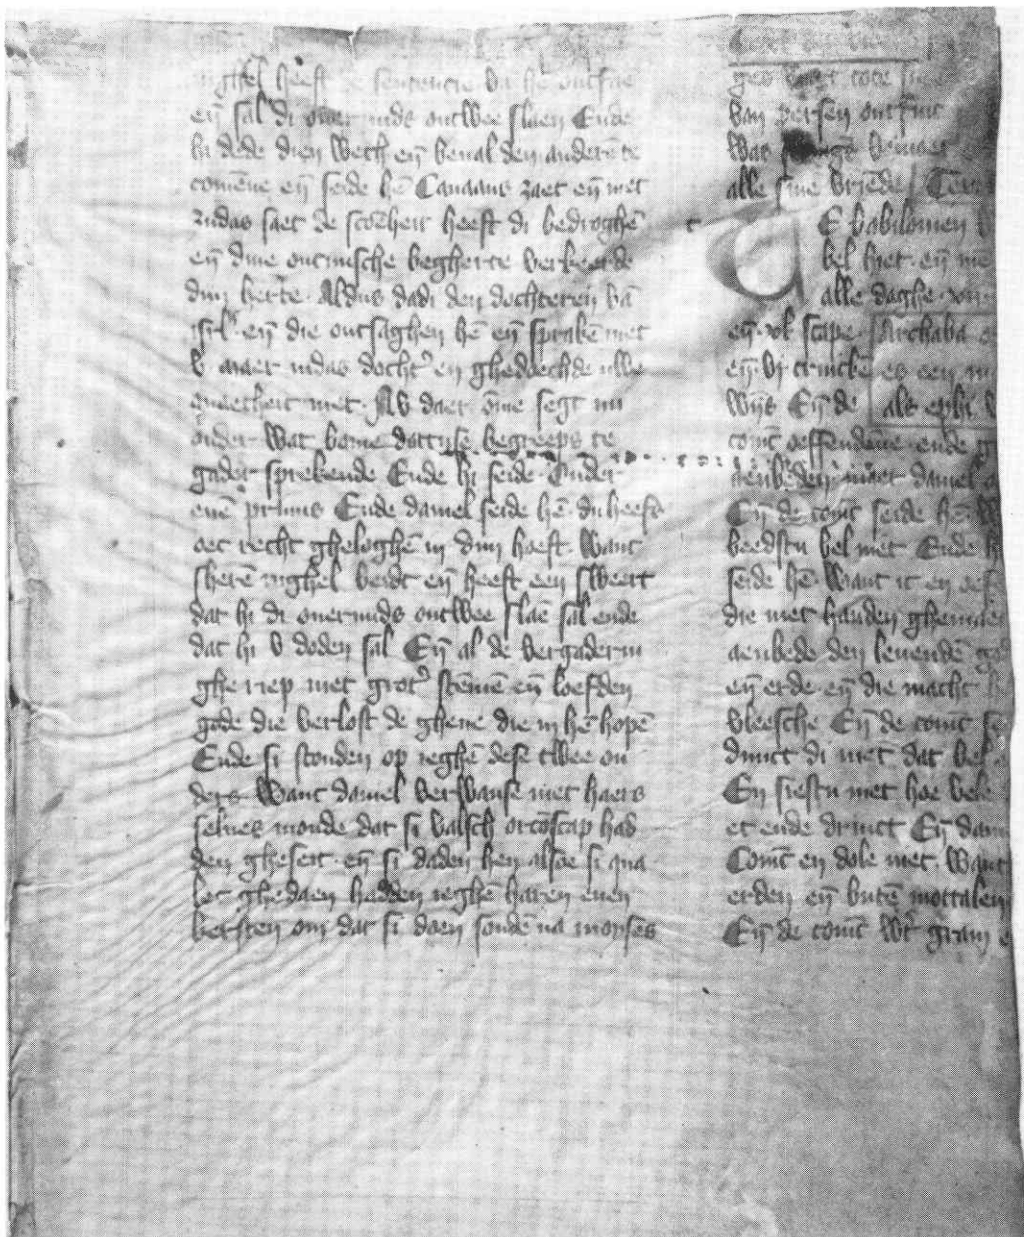 heeft sentencie
eñ sal di ouermids ontwee slaen Ende
hi dede dien wech eñ beual den anderē te
comēne eñ seide hē Canaans zaet eñ niet
iudas saet de scoēheit heeft di bedroghē
eñ dine onkuische begherte verkeerde
dijn herte. Aldus dadi den dochteren vā
isrl' eñ die ontsaghen hē eñ sprakē met
v maer iudas docht' en ghedoechde uwe
quaetheit niet. Nv daer ōme segt mi
onder wat bome dattuse begreeps te
gader sprekende Ende hi seide. Onder
enē prijns Ende daniel seide hē. du heefs
oec recht gheloghē in dijn hoeft. Want
sherē inghel beidt eñ heeft een sweert
dat hi di ouermids ontwee slaē sal ende
dat hi v doden sal Eñ al de vergaderin
ghe riep met grot' stēmen eñ loefden
gode die verlost de ghene die in hē hopē
Ende si stonden op ieghē dese twee ou
ders. Want daniel verwanse met haers
selues monde dat si valsch orcōscap had
den gheseit. eñ si daden hen alsoe si qua
lec ghedaen hadden ieghē haren euen
kersten om dat si doen soudē na moyses
van persen ontfinc
Wat
alle sine vriēde
t E babilonien
bel hiet. eñ me
alle daghe. xij
eñ. xl scape. Archaba
eñ. vj crinckē es een m
wijs Eñ de als ephi
coninc oeffendene. ende
aenbeden. maer daniel
Eñ de coninc seide hē. W
beedstu bel niet Ende h
seide hē. Want ic en oef
die met handen ghemaect
aenbede den leuendē god
eñ erde. eñ die macht he
vleesche Eñ de coninc se
dunct di niet dat bel
En siestu niet hoe vele
et ende drinct Eñ dani
Coninc en dole niet. Want
erden eñ butē mettalen
Eñ de coninc w't gram e